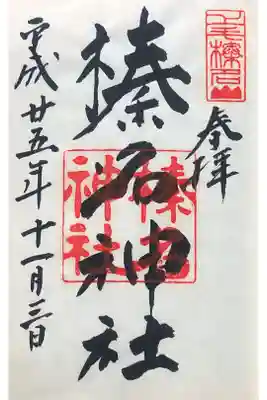 奉拝
榛名神社
榛名神社
平成廿五年十一月三日